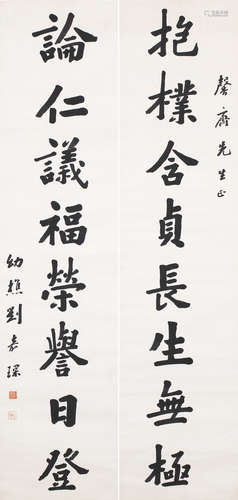 馨齋先生正
抱樸含貞長生無極
論仁議福榮譽日登
幼樵劉嘉琛